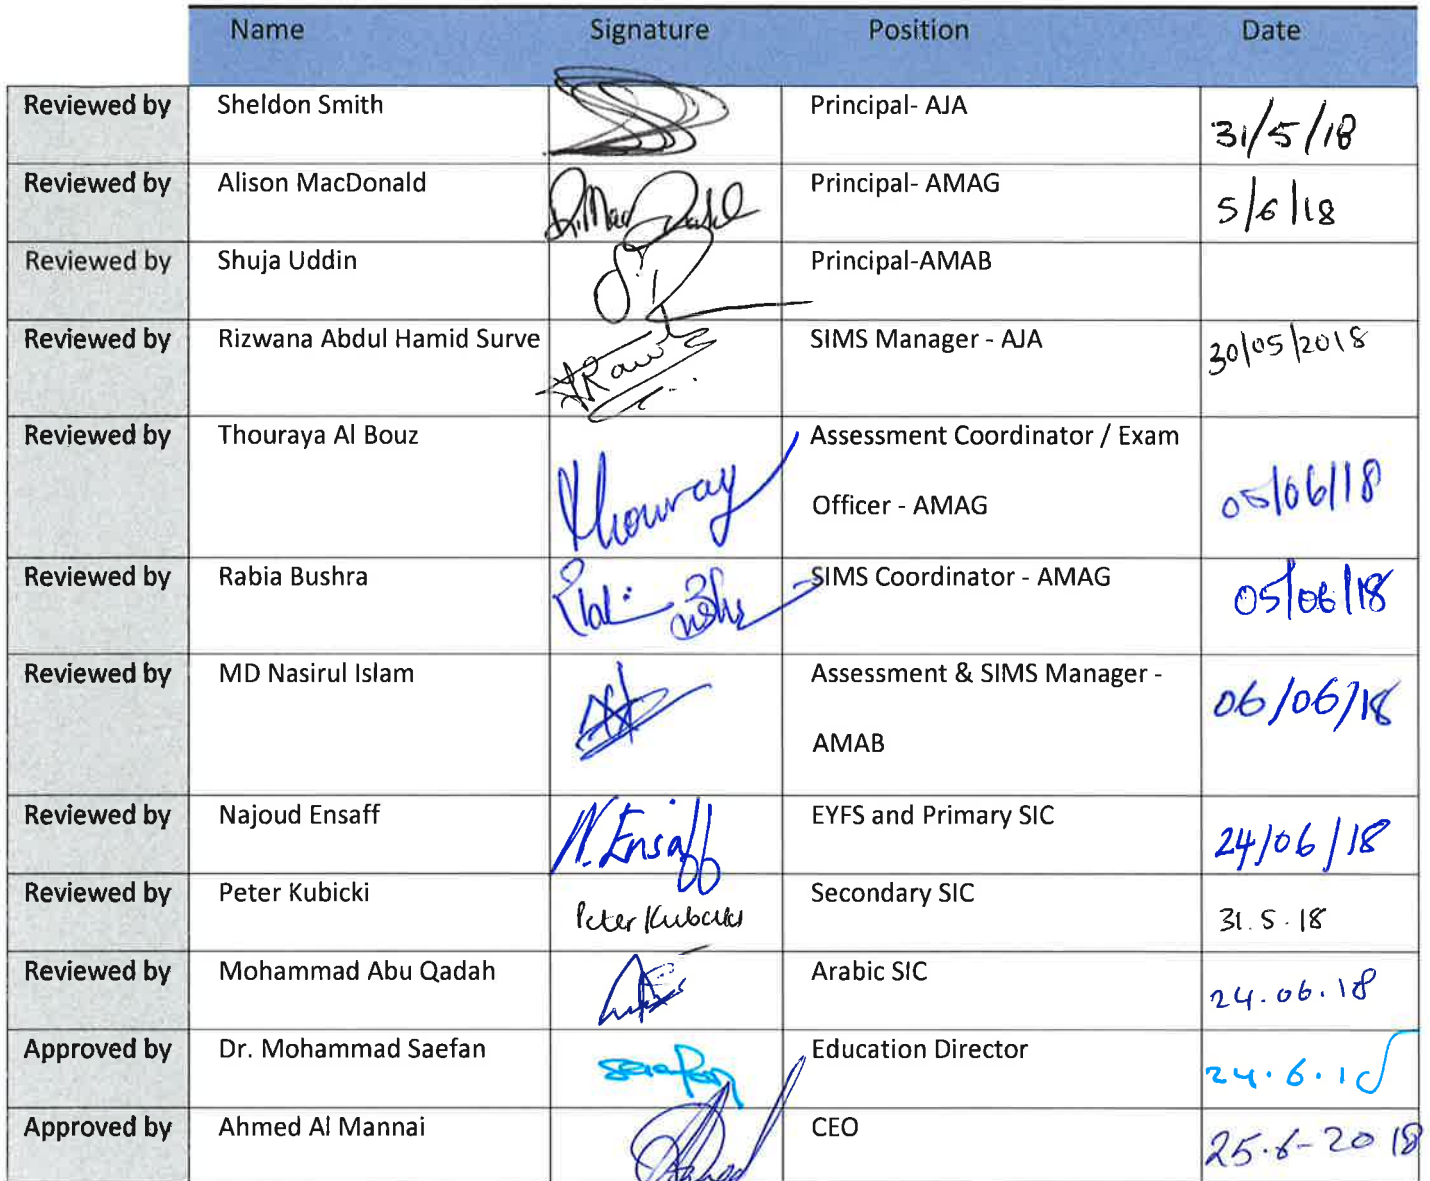 Name Signature Position Date
Reviewed by Sheldon Smith Principal- AJA 31/5/18
Reviewed by Alison MacDonald Principal- AMAG 5/6/18
Reviewed by Shuja Uddin Principal-AMAB
Reviewed by Rizwana Abdul Hamid Surve SIMS Manager - AJA 30/05/2018
Reviewed by Thouraya Al Bouz Thouray Assessment Coordinator / Exam
Officer - AMAG 05/06/18
Reviewed by Rabia Bushra SIMS Coordinator - AMAG 05/06/18
Reviewed by MD Nasirul Islam Assessment & SIMS Manager -
AMAB 06/06/18
Reviewed by Najoud Ensaff N. Ensaff EYFS and Primary SIC 24/06/18
Reviewed by Peter Kubicki Peter Kubicki Secondary SIC 31.5.18
Reviewed by Mohammad Abu Qadah Arabic SIC 24.06.18
Approved by Dr. Mohammad Saefan saefan Education Director 24.6.18
Approved by Ahmed Al Mannai CEO 25.6-2018